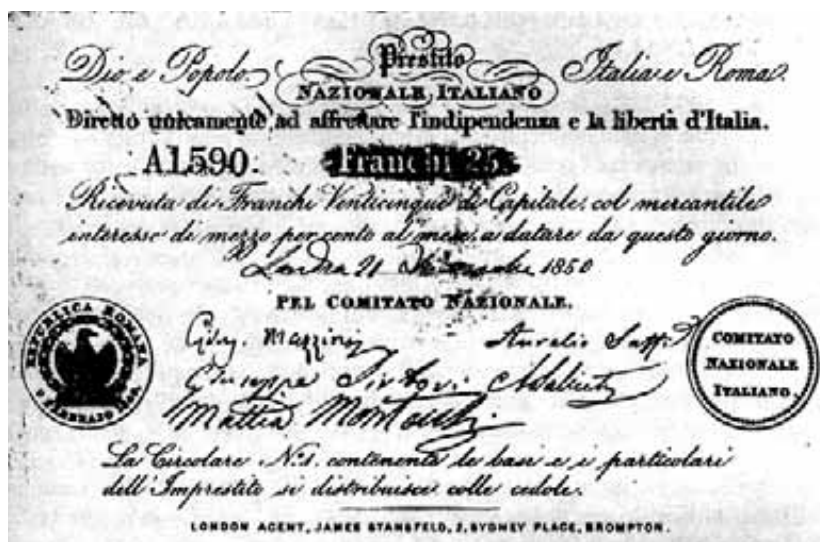 Dio e Popolo. Prestito Italia e Roma.
NAZIONALE ITALIANO
Diretto unicamente ad affrettare l'indipendenza e la libertà d'Italia.
A1,590. Franchi 25
Ricevuta di Franchi Venticinque di Capitale, col mercantile
interesse di mezzo per cento al mese, a datare da questo giorno.
Londra 21 1850
PEL COMITATO NAZIONALE.
REPUBLICA ROMANA
9 FEBBRAIO
Gius. Mazzini Aurelio Saffi
Giuseppe Sirtori A Saliceti
Mattia Montecchi
COMITATO
NAZIONALE
ITALIANO.
La Circolare N.1. contenente le basi e i particolari
dell'Imprestito si distribuisce colle cedole.
LONDON AGENT, JAMES STANSFELD, 2, SYDNEY PLACE, BROMPTON.